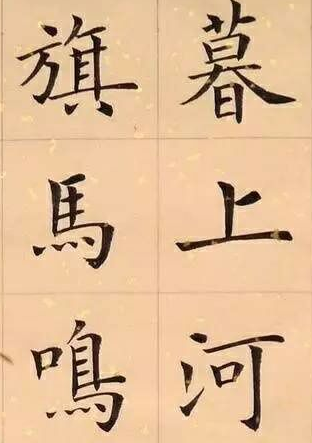 暮上河
旗馬鳴